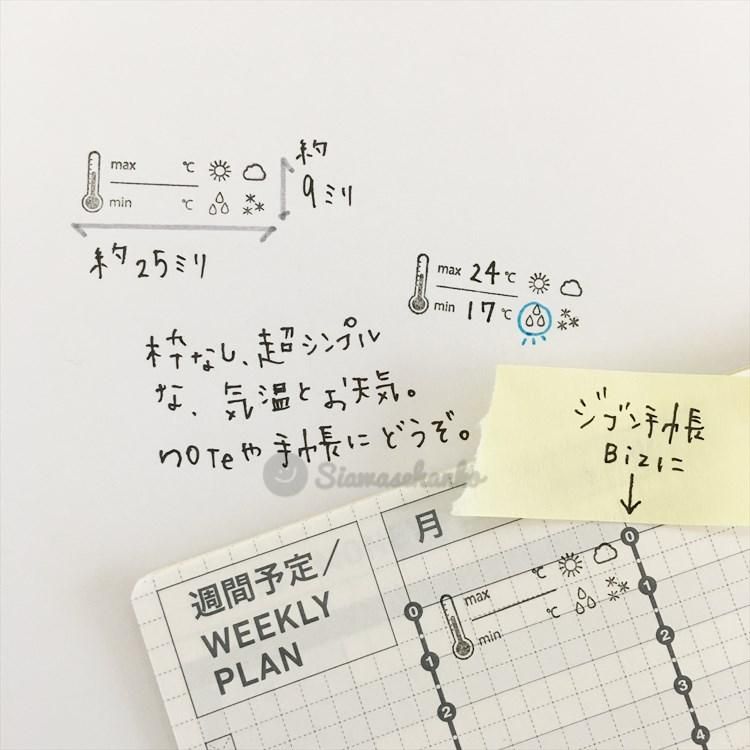 max ℃
min ℃
約
9ミリ
約25ミリ
max 24℃
min 17℃
枠なし、超シンプル
な、気温とお天気。
noteや手帳にどうぞ。
Siawasehanko
ジブン手帳
Bizに
月
週間予定／
WEEKLY
PLAN
max ℃
min ℃
0
1
2
0
1
2
3
4